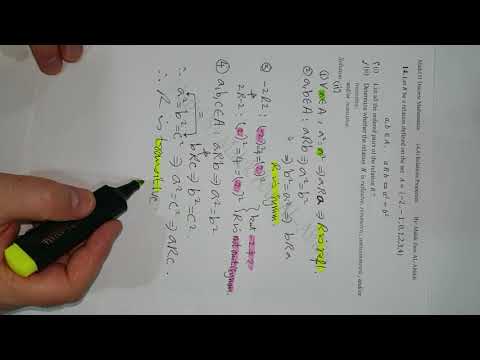 Math151 Discrete Mathematics (4,1) Relations Properties By: Malek Zein AL-Abidin
14. Let R be a relation defined on the set A = {-2, -1, 0, 1, 2, 3, 4}
a, b ∈ A, a R b ⇔ a² = b²
(i) List all the ordered pairs of the relation R.
(ii) Determine whether the relation R is reflexive, symmetric, antisymmetric, and/or transitive.
Solution:
(ii)
① ∀a∈A : a² = a² ⇒ aRa ⇒ R is refl.
② a,b∈A : aRb ⇒ a² = b²
⇒ b² = a² ⇒ bRa
R is symm.
③ -2R2 : (-2)² = 4 = (2)²
2R-2 : (2)² = 4 = (-2)² } but -2 ≠ 2
R is not antisymm.
④ a,b,c∈A : aRb ⇒ a² = b²
bRc ⇒ b² = c²
∴ a² = b² = c² ⇒ a² = c² ⇒ aRc.
∴ R is transitive